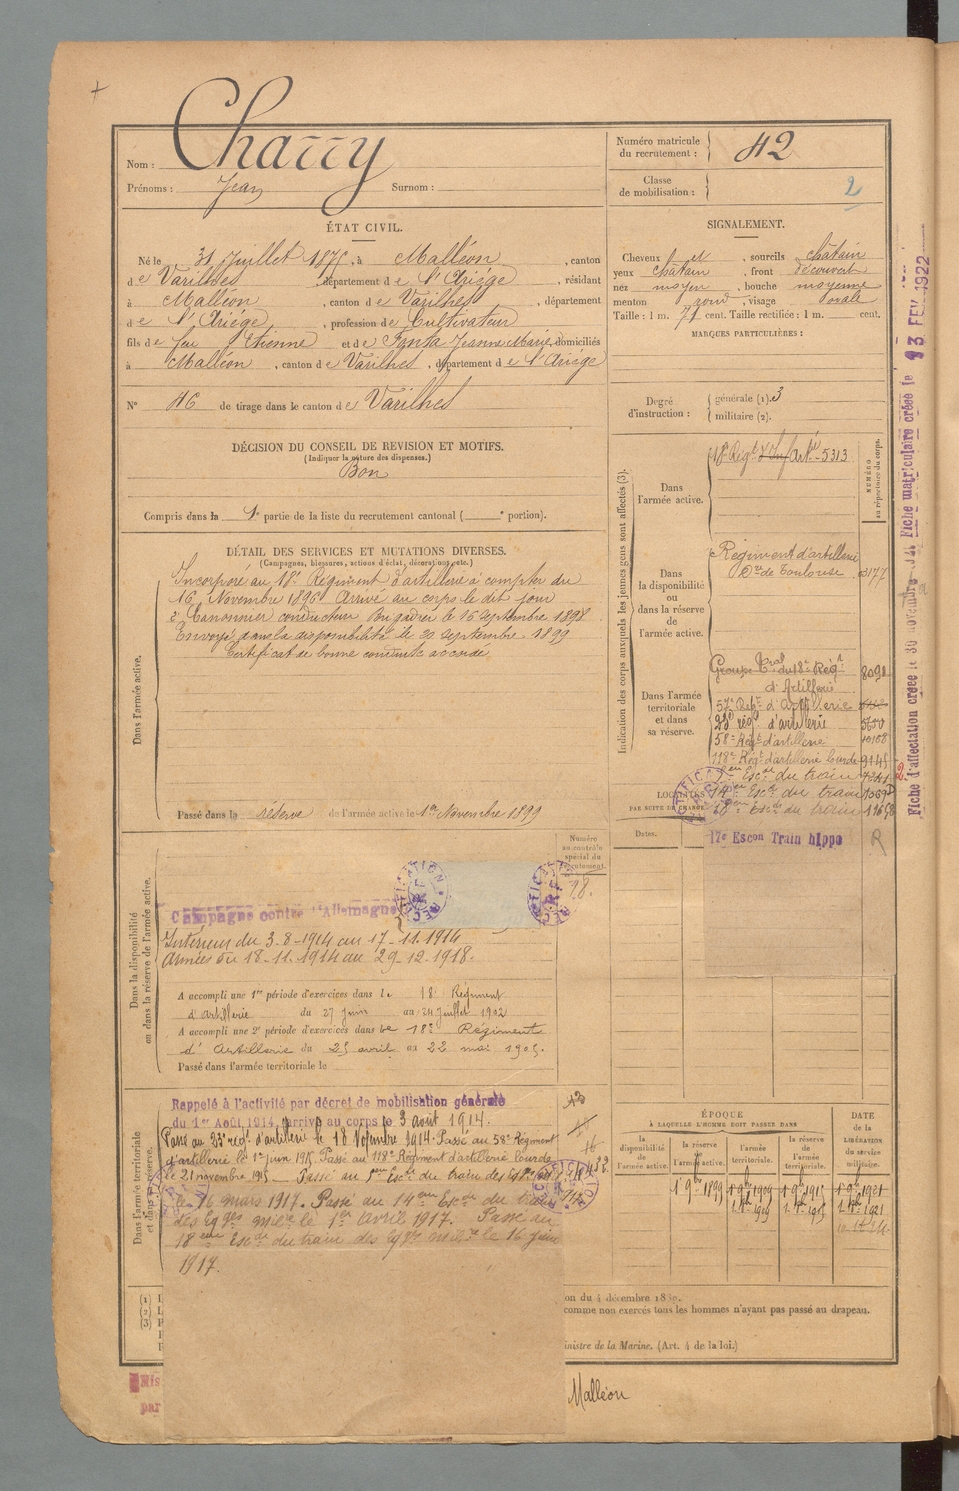 Nom : Charry
Prénoms : Jean Surnom :
Numéro matricule du recrutement : 42
Classe de mobilisation : 2
ÉTAT CIVIL.
Né le 31 Juillet 1875, à Malléon, canton
de Varilhes, département de l'Ariége, résidant
à Malléon, canton de Varilhes, département
de l'Ariége, profession de Cultivateur
fils de feu Etienne et de Jeanne Marie, domiciliés
à Malléon, canton de Varilhes, département de l'Ariége
N° 46 de tirage dans le canton de Varilhes
SIGNALEMENT.
Cheveux et, sourcils châtain
yeux châtain, front découvert
nez moyen, bouche moyenne
menton rond, visage ovale
Taille : 1 m. 71 cent. Taille rectifiée : 1 m. cent.
MARQUES PARTICULIÈRES :
DÉCISION DU CONSEIL DE REVISION ET MOTIFS.
(Indiquer la nature des dispenses.)
Bon
Compris dans la 1e partie de la liste du recrutement cantonal ( e portion).
Degré d'instruction : générale (1). 3
militaire (2).
DÉTAIL DES SERVICES ET MUTATIONS DIVERSES.
(Campagnes, blessures, actions d'éclat, décorations, etc.)
Dans l'armée active.
Incorporé au 18e Régiment d'artillerie à compter du
16 Novembre 1896 Arrivé au corps le dit jour
2e Canonnier conducteur Brigadier le 16 Septembre 1898
Envoyé dans la disponibilité le 20 Septembre 1899
Certificat de bonne conduite accordé
Passé dans la réserve de l'armée active le 1er Novembre 1899
Indication des corps auxquels les jeunes gens sont affectés (3).
NUMÉRO au répertoire du corps.
Dans l'armée active.
18e Régt d'Inf Artie 5313
Dans la disponibilité ou dans la réserve de l'armée active.
Régiment d'artillerie
de Toulouse 3177
Dans l'armée territoriale et dans sa réserve.
Groupe Tral du 18e Régt
d'Artillerie
57e Régt d'Artillerie
23e régt d'artillerie
58e Régt d'artillerie
118e Régt d'artillerie lourde 9145
Escon du train
14eme Escon du train
18eme Escon du train
17e Escon Train hippo
R
Dates.
Dans la disponibilité ou dans la réserve de l'armée active.
Numéro au contrôle spécial du recrutement.
Campagne contre l'Allemagne
Intérieur du 3-8-1914 au 17-11-1914
Armées du 18-11-1914 au 29-12-1918.
A accompli une 1re période d'exercices dans le 18e Régiment
d'Artillerie du 27 juin au 24 juillet 1902
A accompli une 2e période d'exercices dans le 18e Régiment
d'Artillerie du 25 avril au 22 mai 1905.
Passé dans l'armée territoriale le
Dans l'armée territoriale et dans sa réserve.
Rappelé à l'activité par décret de mobilisation générale
du 1er Août 1914, arrivé au corps le 3 août 1914.
Passé au 23e régt d'artillerie le 18 Novembre 1914. Passé au 58e Régiment
d'artillerie le 1er juin 1915. Passé au 118e Régiment d'artillerie lourde
le 21 novembre 1915. Passé au Escon du train des
le 16 mars 1917. Passé au 14eme Escon du train
des Eqges milres le 1er Avril 1917. Passé au
18eme Escon du train des Eqges milres le 16 juin
1917.
ÉPOQUE
À LAQUELLE L'HOMME DOIT PASSER DANS
la disponibilité de l'armée active.
la réserve de l'armée active.
l'armée territoriale.
la réserve de l'armée territoriale.
DATE de la LIBÉRATION du service militaire.
on du 4 décembre
comme non exercés tous les hommes n'ayant pas passé au drapeau.
inistre de la Marine. (Art. 4 de la loi.)
Malléon
Fiche matriculaire créée le 13 FEV 1922